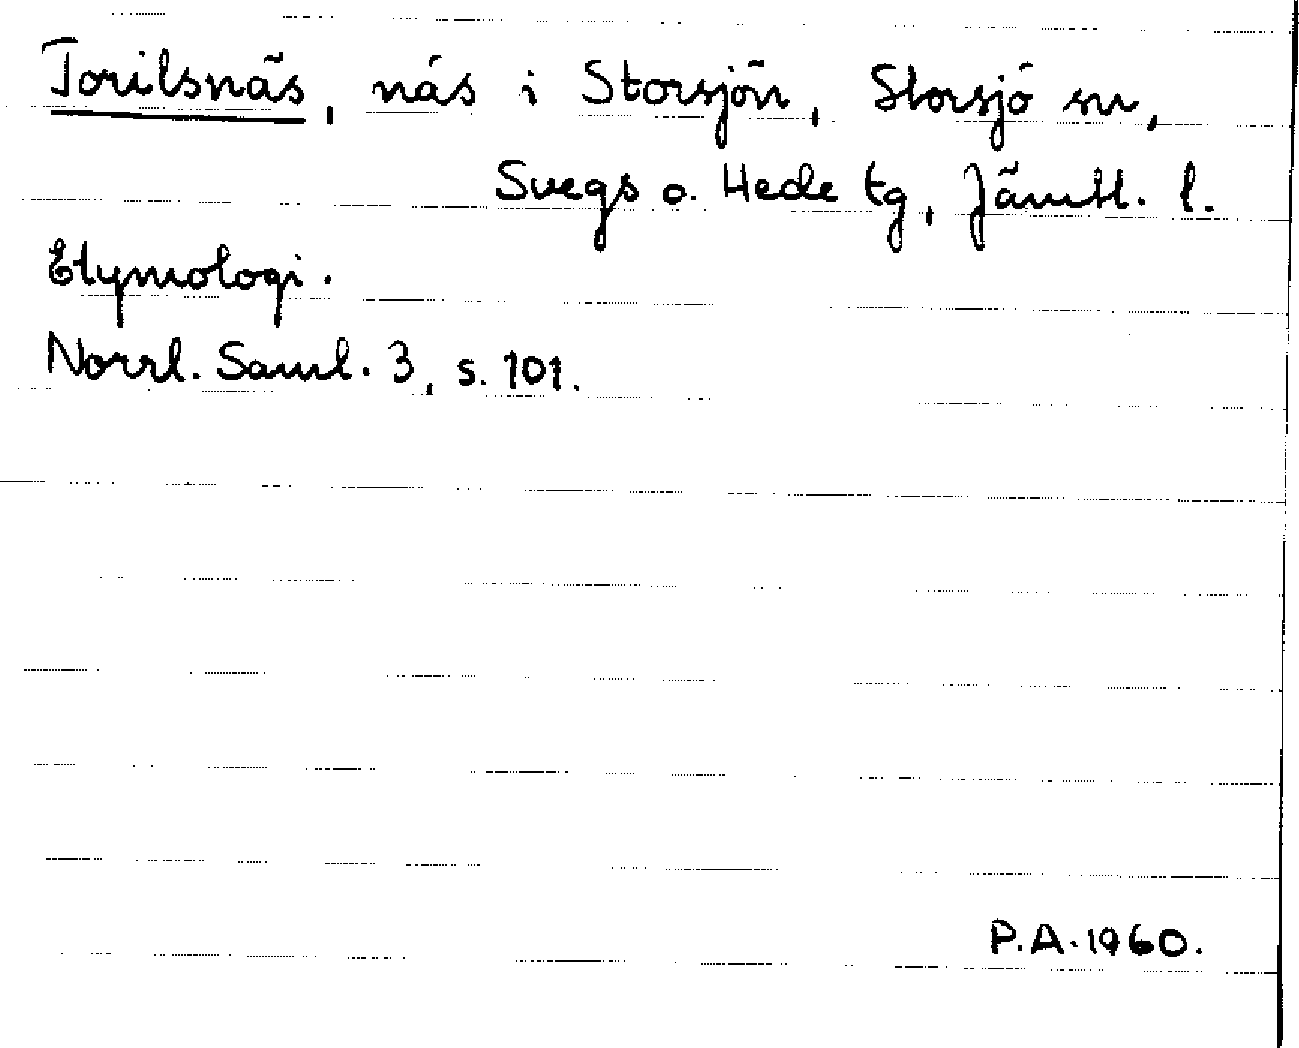 Torilsnäs, näs i Storsjön, Storsjö sn,
Svegs o. Hede tg, Jämtl. l.
Etymologi.
Norrl. Saml. 3, s. 101.
P.A. 1960.